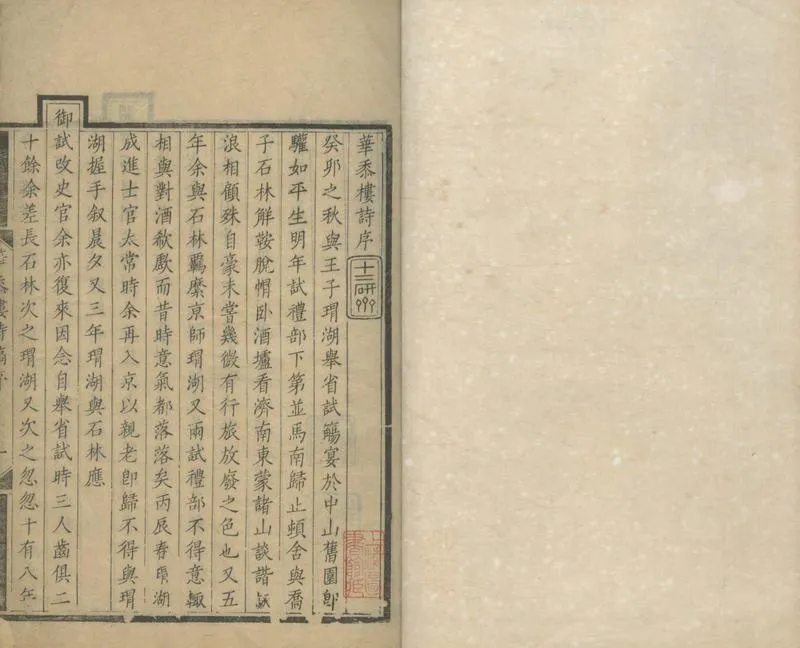 華黍樓詩序
癸夘之秋與王子瑁湖舉省試觴宴於中山舊園卽
驩如平生明年試禮部下第並馬南歸止頓舍與喬
子石林觧鞍脫㡌卧酒壚看濟南東蒙諸山談諧
浪相顧殊自豪未嘗幾微有行旅放廢之色也又五
年余與石林羈縻京師瑁湖又兩試禮部不得意輙
相與對酒欷歔而昔時意氣都落落矣丙辰春瑁湖
成進士官太常時余再入京以親老卽歸不得與瑁
湖握手叙晨夕又三年瑁湖與石林應
御試改史官余亦復來因念自舉省試時三人齒俱二
十餘余差長石林次之瑁湖又次之忽忽十有八年